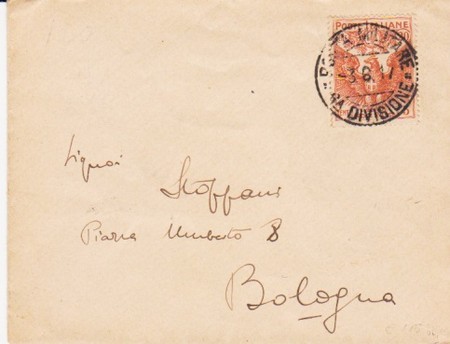 POSTE ITALIANE
POSTA MILITARE
-3.6.17
4A DIVISIONE
Signori
Stoffani
Piazza Umberto 8
Bologna